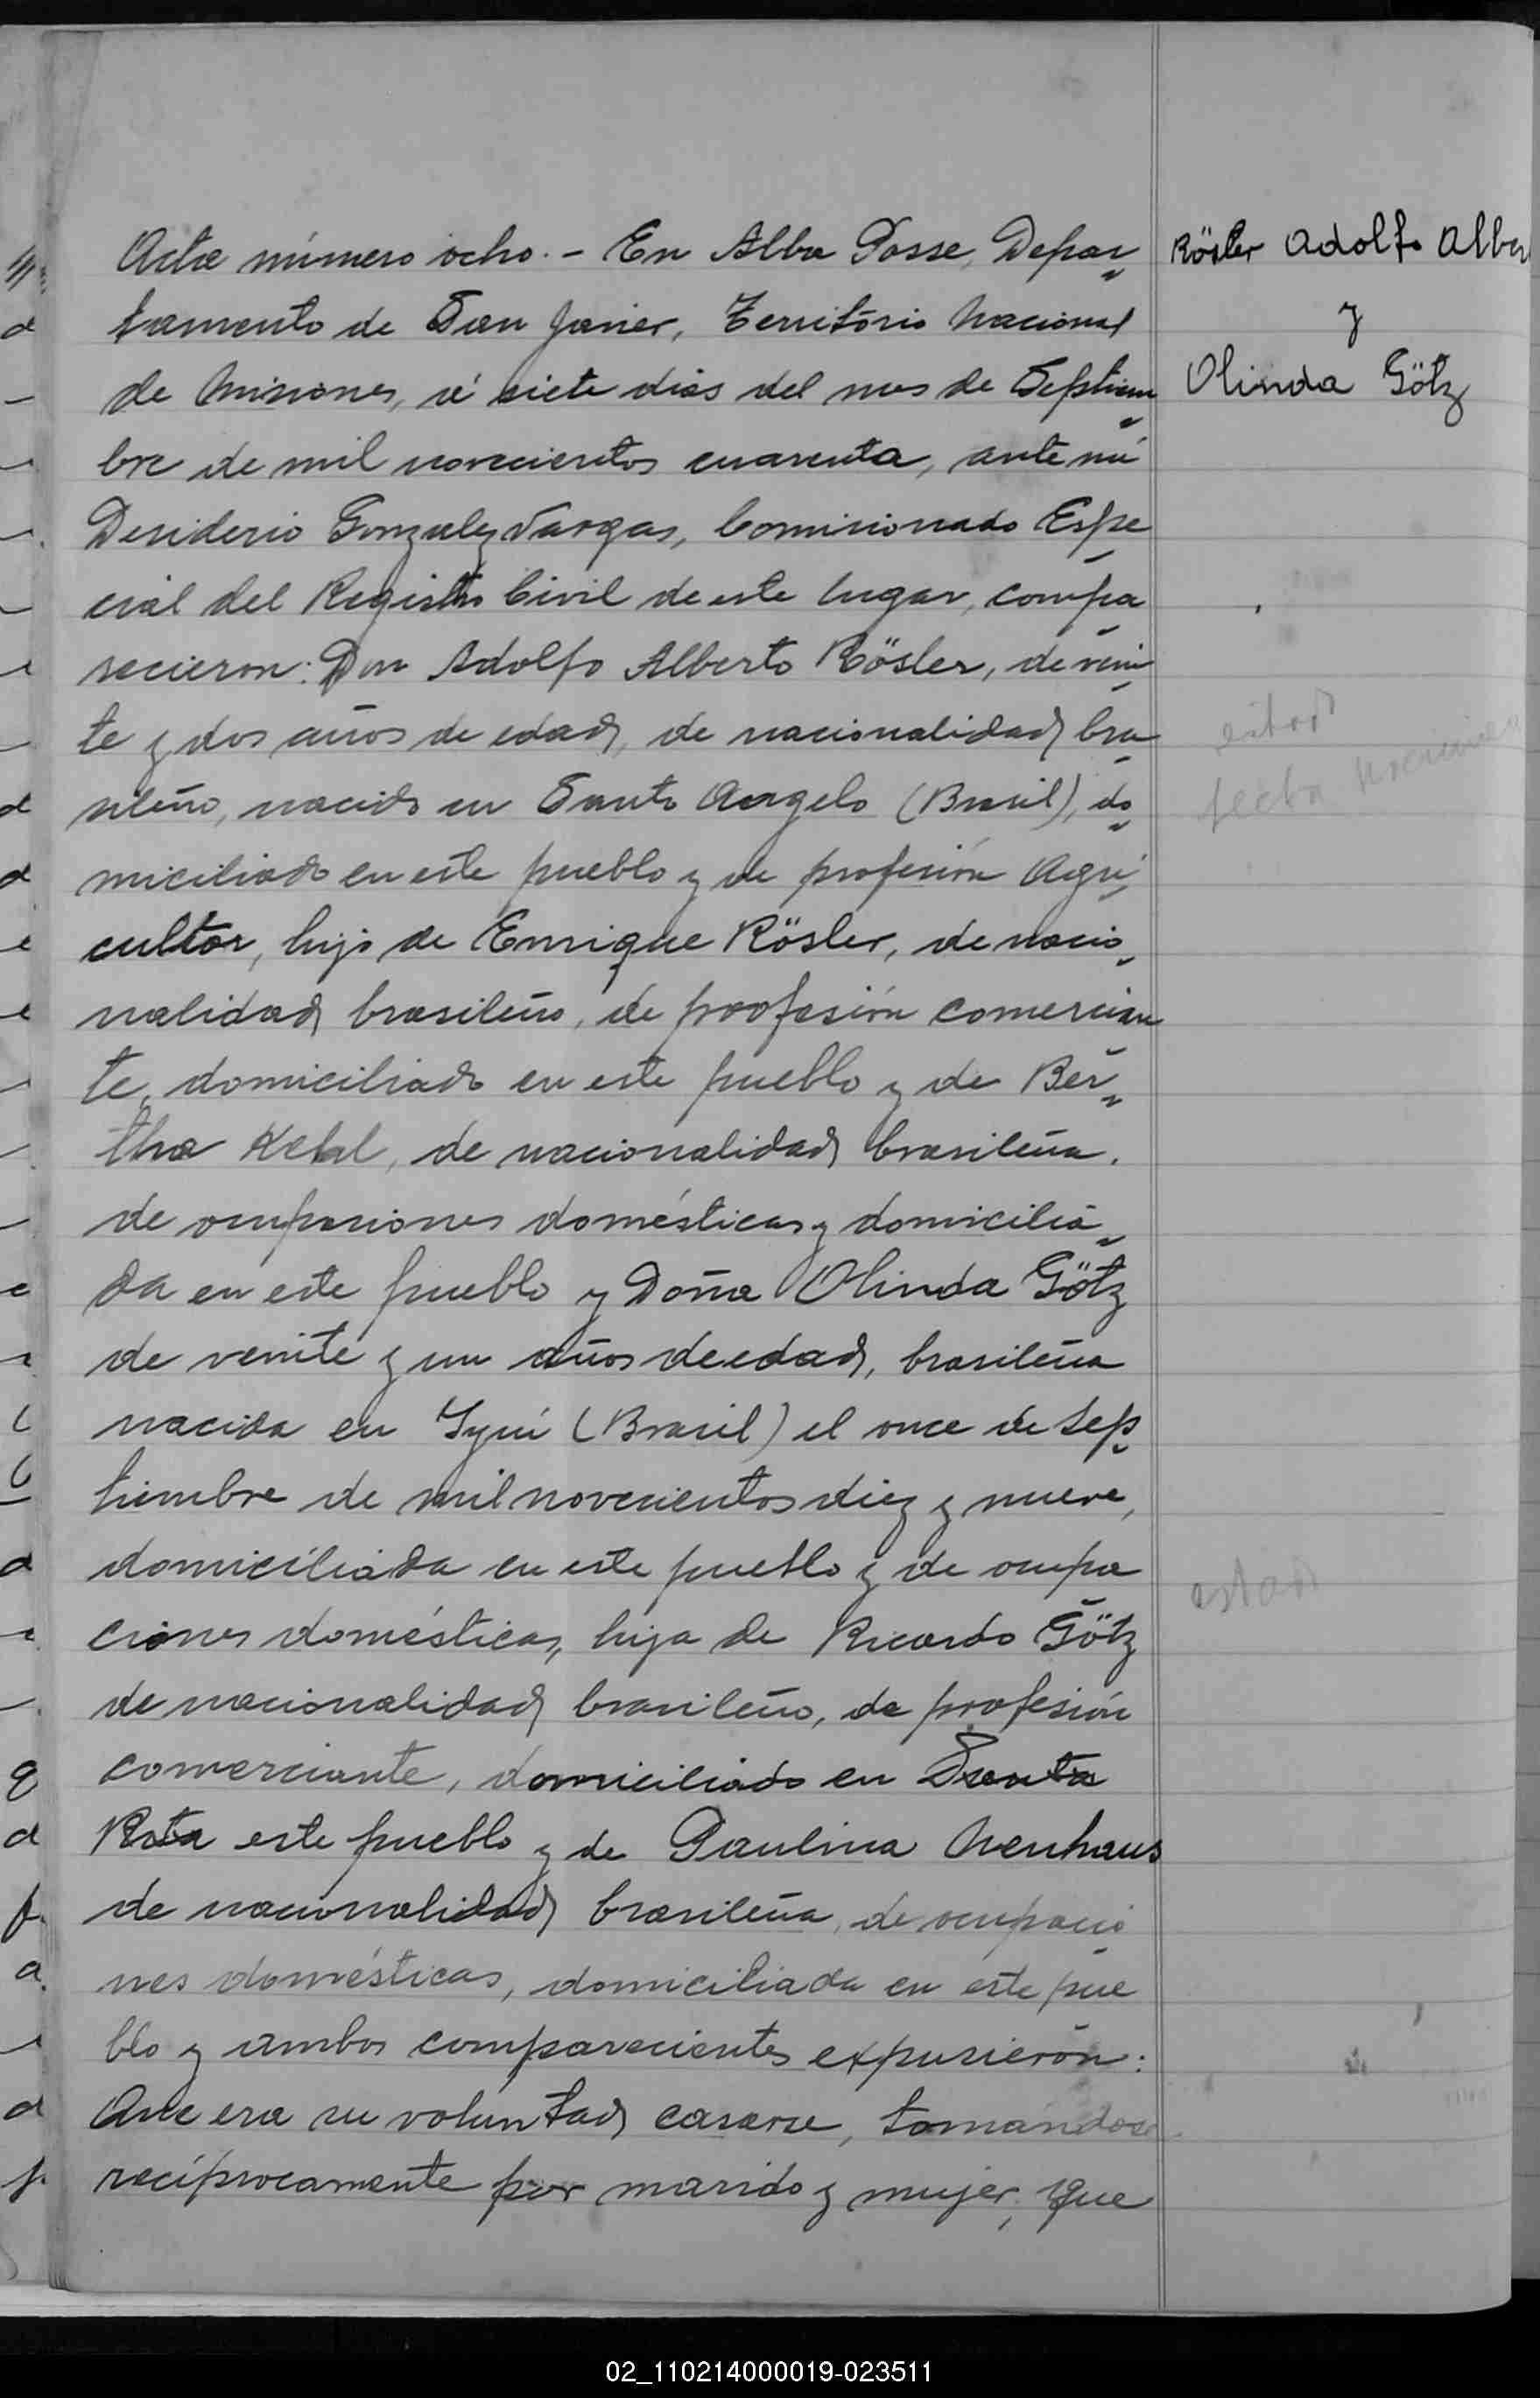 Rösler Adolfo Alber
y
Olinda Götz
Acta número ocho. - En Alba Posse, Depar
tamento de San Javier, Território Nacional
de Misiones, á siete dias del mes de Septiem
bre de mil novecientos cuarenta, ante mi
Desiderio Gonzalez Vargas, Comisionado Espe
cial del Registro Civil de este lugar, compa
recieron: Don Adolfo Alberto Rösler, de vein
te y dos años de edad, de nacionalidad bra
sileño, nacido en Santo Angelo (Brasil), do
miciliado en este pueblo y de profesión Agri
cultor, hijo de Enrique Rösler, de nacio
nalidad brasileño, de profesión comercian
te, domiciliado en este pueblo y de Ber
tha Kehl, de nacionalidad brasileña,
de ocupasiones domésticas y domicilia
da en este pueblo y Doña Olinda Götz
de veinte y un años de edad, brasileña
nacida en Iyuí (Brasil) el once de Sep
tiembre de mil novecientos diez y nueve,
domiciliada en este pueblo y de ocupa
ciones domésticas, hija de Ricardo Götz
de nacionalidad brasileño, de profesión
comerciante, domiciliado en Santa
Rosa este pueblo y de Paulina Neuhaus
de nacionalidad brasileña, de ocupacio
nes domésticas, domiciliada en este pue
blo y ambos comparecientes expusieron:
Que era su voluntad casarse, tomándose
recíprocamente por marido y mujer, que
02_110214000019-023511